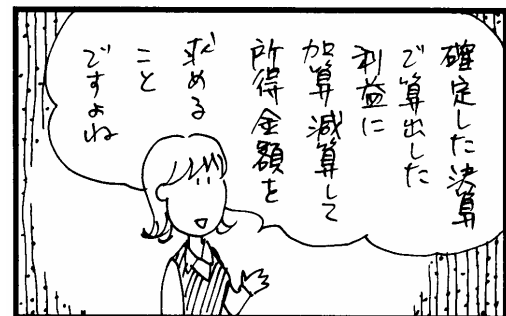 確定した決算
で算出した
利益に
加算減算して
所得金額を
求める
こと
ですよね